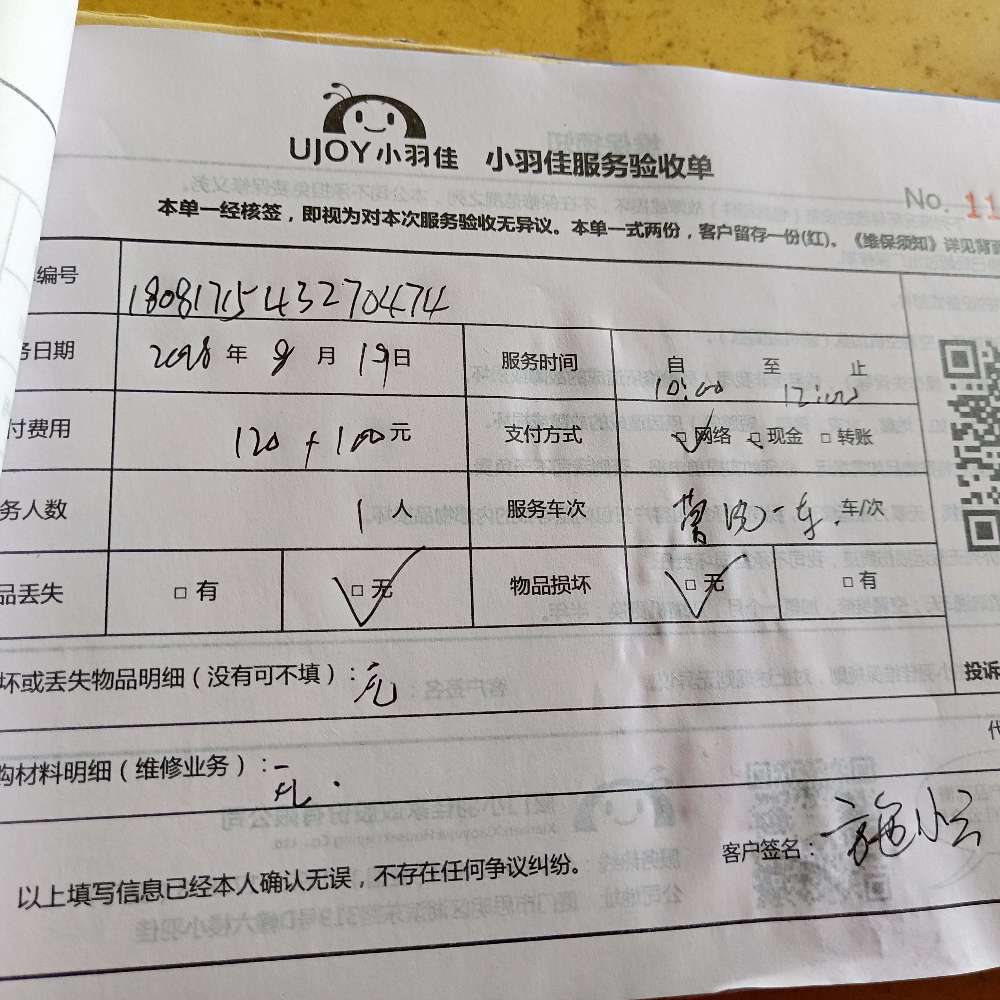 UJOY小羽佳 小羽佳服务验收单
No. 11
本单一经核签，即视为对本次服务验收无异议。本单一式两份，客户留存一份(红)。《维保须知》详见背面
编号 180817154432704​74
务日期 2018 年 8 月 19 日 服务时间 自 10:00 至 12:00 止
付费用 120 + 100 元 支付方式 □ 网络 □ 现金 □ 转账
务人数 1 人 服务车次 一车 车/次
品丢失 □ 有 □ 无 物品损坏 □ 无 □ 有
坏或丢失物品明细（没有可不填）：无
投诉
购材料明细（维修业务）：无
以上填写信息已经本人确认无误，不存在任何争议纠纷。
客户签名：施小云